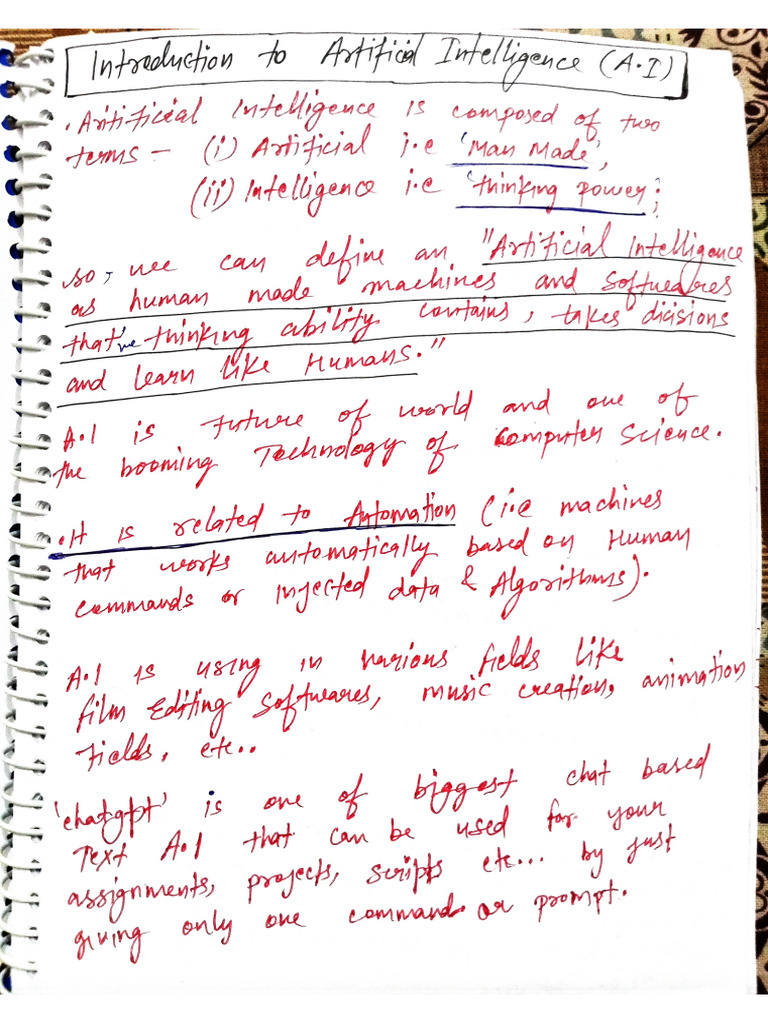 Introduction to Artificial Intelligence (A.I)
. Artificial Intelligence is composed of two
terms - (i) Artificial i.e 'Man Made',
(ii) Intelligence i.e 'thinking power;
so, we can define an "Artificial Intelligence
as human made machines and softwares
that've thinking ability contains, takes dicisions
and learn like Humans."
A.I is Future of world and one of
the booming Technology of Computer Science.
. It is related to Automation (i.e machines
that works automatically based on Human
commands or injected data & Algorithms).
A.I is using in various fields like
film Editing softwares, music creation, animation
fields, etc..
'chatgpt' is one of biggest chat based
Text A.I that can be used for your
assignments, projects, scripts etc... by just
giving only one command or prompt.